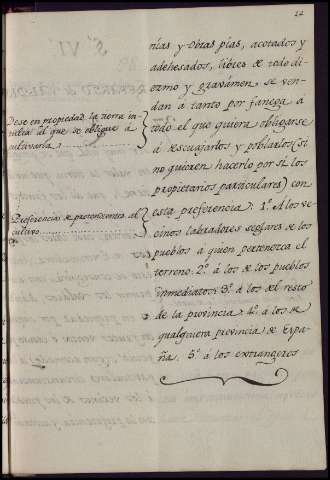 22
nías y Obras pías, acotados y
adehesados, libres de todo di-
ezmo y gravámen, se ven-
dan á tanto por fanega á
todo el que quiera obligarse
á descuajarlos y poblarlos (si
no quieren hacerlo por sí los
propietarios particulares) con
esta preferencia: 1.º A los ve-
cinos labradores seglares de los
pueblos á quien pertenezca el
terreno: 2.º á los de los pueblos
inmediatos: 3.º á los del resto
de la provincia: 4.º á los de
qualquiera provincia de Espa-
ña. 5.º á los extrangeros
Dese en propiedad la tierra in-
culta al que se obligue á
cultivarla
Preferencias de pretendientes al
cultivo